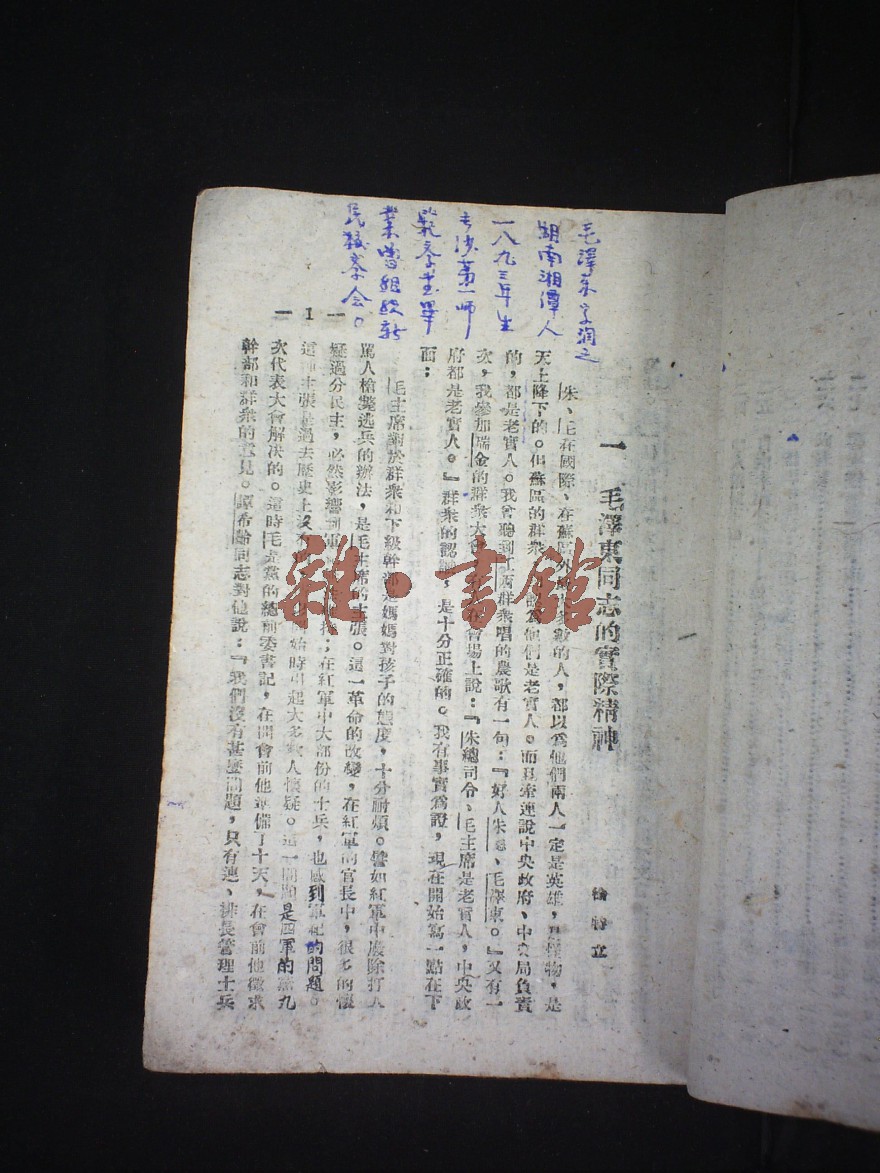 毛澤东字潤之
湖南湘潭人
一八九三年生
長沙第一師
範學堂畢
業曾組織新
民
會。
一 毛澤東同志的實際精神
徐特立
朱、毛在國際、在蘇區外
的人,都以爲他們兩人一定是英雄,
怪物,是
天上降下的。但蘇區的群衆
爲他們是老實人。而且牽連說中央政府、中央局負責
的,都是老實人。我曾聽到江西群衆唱的農歌有一句:『好人朱
、毛澤東。』又有一
次,我參加瑞金的群衆大會
會場上說:『朱總司令、毛主席是老實人,中央政
府都是老實人。』群衆的認識,是十分正確的。我有事實爲證,現在開始寫一點在下
面:
毛主席對於群衆和下級幹部是媽媽對孩子的態度,十分耐煩。譬如紅軍中廢除打人
罵人槍斃逃兵的辦法,是毛主席的主張。這一革命的改變,在紅軍的官長中,很多的懷
疑過分民主,必然影響到軍
;在紅軍中大部份的士兵,也感到軍紀的問題。
這種主張是過去歷史上沒有
開始時引起大多數人懷疑。這一問題是四軍的黨九
次代表大會解决的。這時毛是黨的總前委書記,在開會前他準備了十天,在會前他徵求
幹部和群衆的意見。譚希
同志對他說:『我們沒有甚麽問題,只有連、排長管理士兵
— 1 —
雜·書館